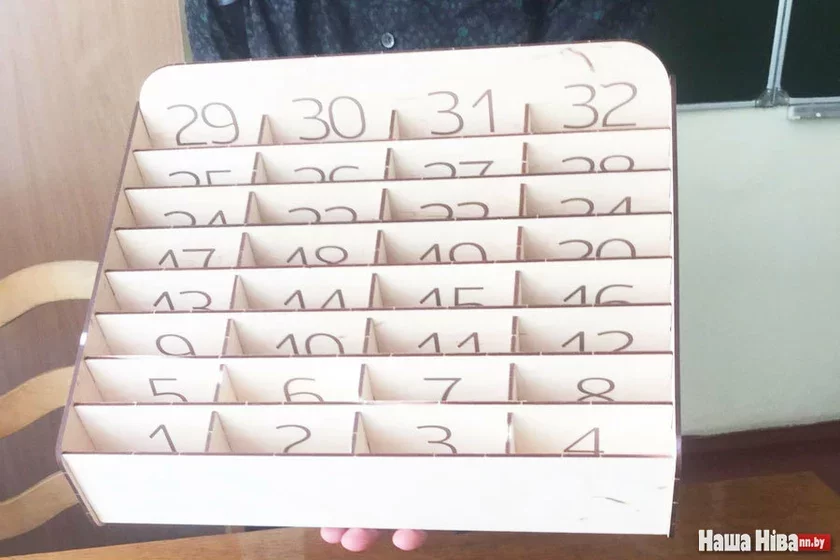 29 30 31 32
25 26 27 28
21 22 23 24
17 18 19 20
13 14 15 16
9 10 11 12
5 6 7 8
1 2 3 4
Наша Ніва nn.by